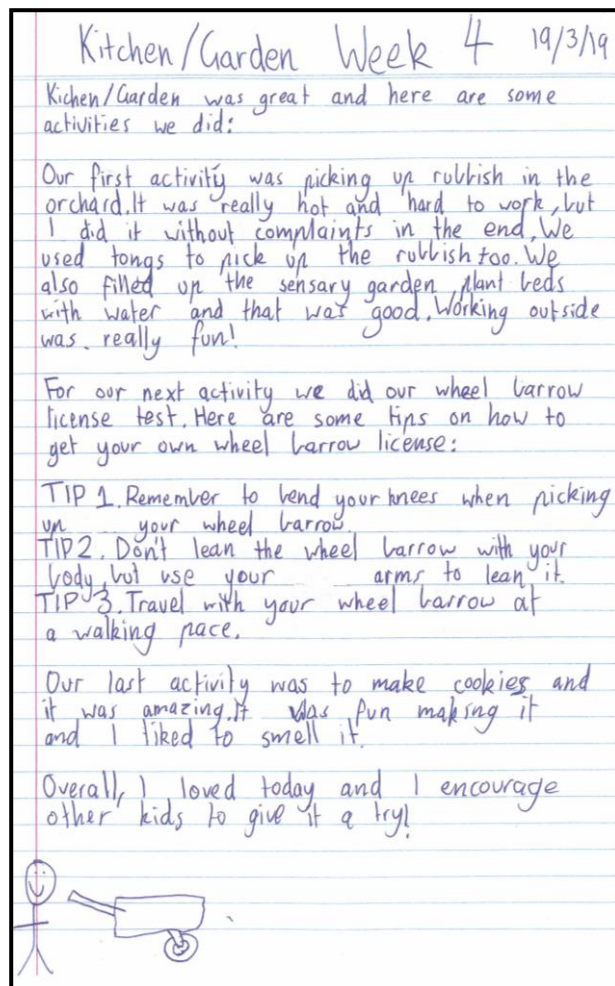 Kitchen/Garden Week 4 19/3/19
Kichen/Garden was great and here are some
activities we did:
Our first activity was picking up rubbish in the
orchard. It was really hot and hard to work, but
I did it without complaints in the end. We
used tongs to pick up the rubbish too. We
also filled up the sensary garden plant beds
with water and that was good. Working outside
was. really fun!
For our next activity we did our wheel barrow
license test. Here are some tips on how to
get your own wheel barrow license:
TIP 1. Remember to bend your knees when picking
up your wheel barrow.
TIP 2. Don't lean the wheel barrow with your
body, but use your arms to lean it.
TIP 3. Travel with your wheel barrow at
a walking pace.
Our last activity was to make cookies and
it was amazing. It was fun making it
and I liked to smell it.
Overall, I loved today and I encourage
other kids to give it a try!